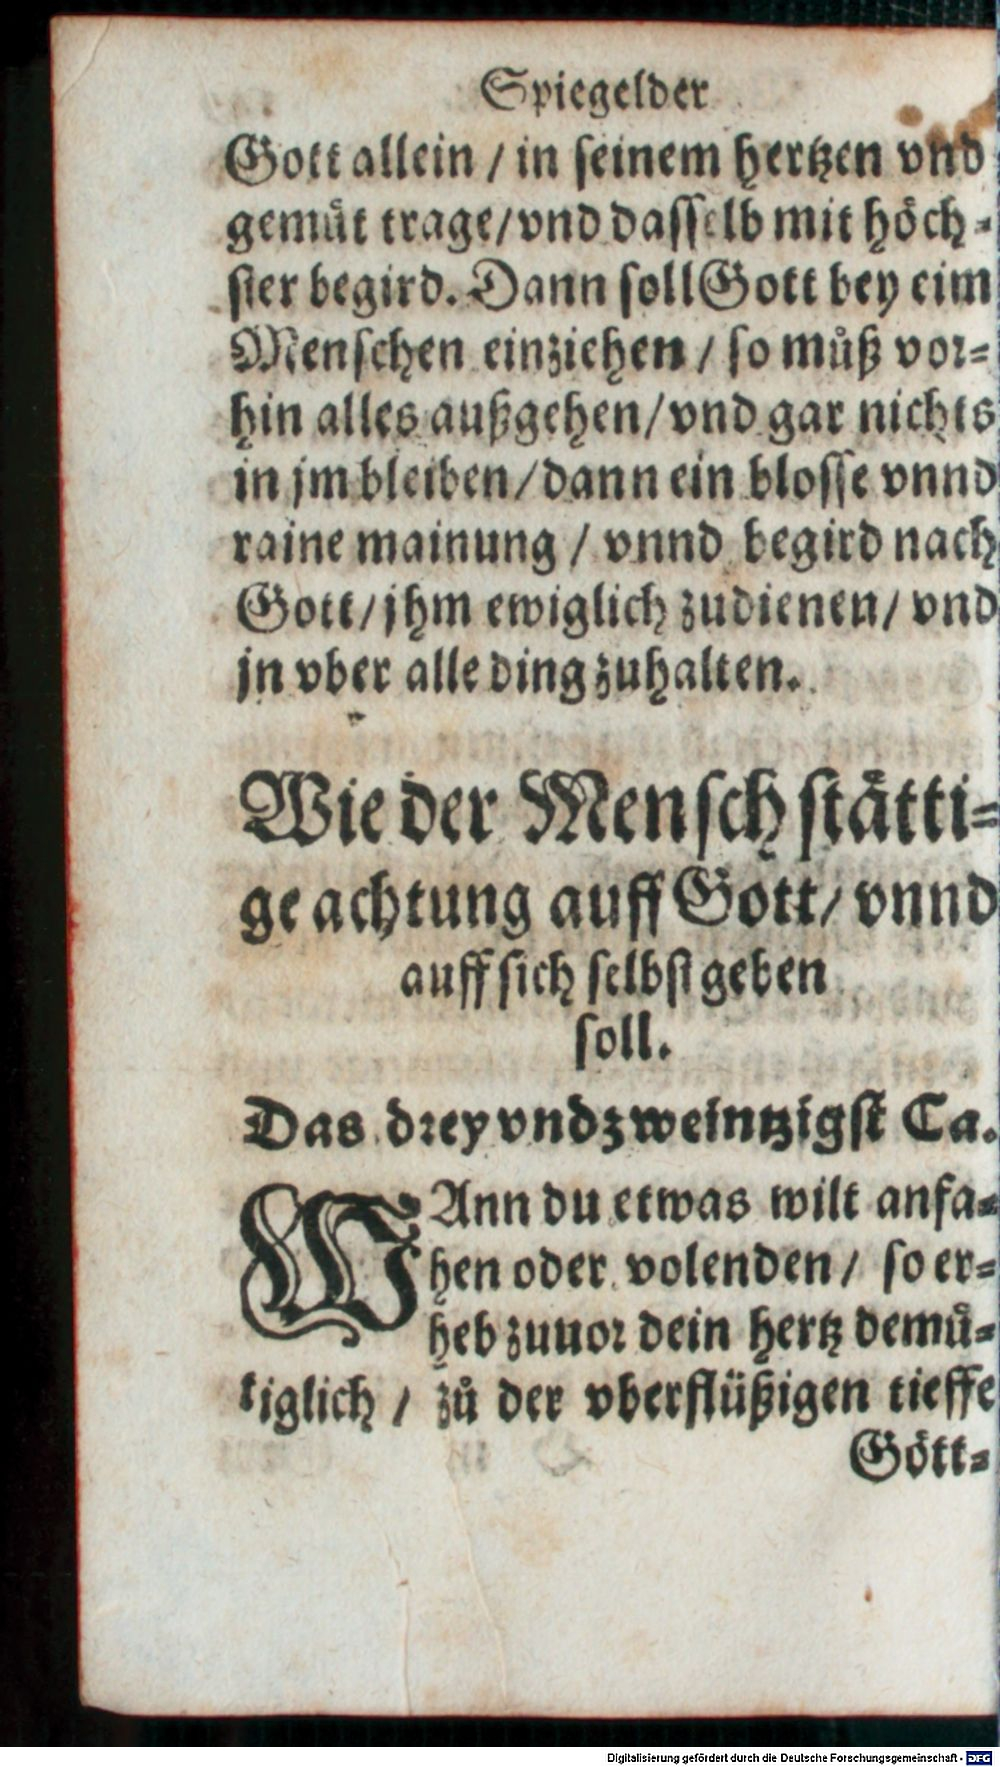 Spiegel der
Gott allein / in seinem hertzen vnd
gemüt trage/ vnd dasselb mit höch-
ster begird. Dann soll Gott bey eim
Menschen einziehen / so můß vor-
hin alles außgehen/ vnd gar nichts
in jm bleiben/ dann ein blosse vnnd
raine mainung / vnnd begird nach
Gott/ jhm ewiglich zudienen/ vnd
jn vber alle ding zuhalten.
Wie der Mensch stätti-
ge achtung auff Gott/ vnnd
auff sich selbst geben
soll.
Das drey vnd zweintzigst Ca.
WAnn du etwas wilt anfa-
hen oder volenden / so er-
heb zuuor dein hertz demů-
tiglich / zů der vberflüßigen tieffe
Gött-
Digitalisierung gefördert durch die Deutsche Forschungsgemeinschaft - DFG